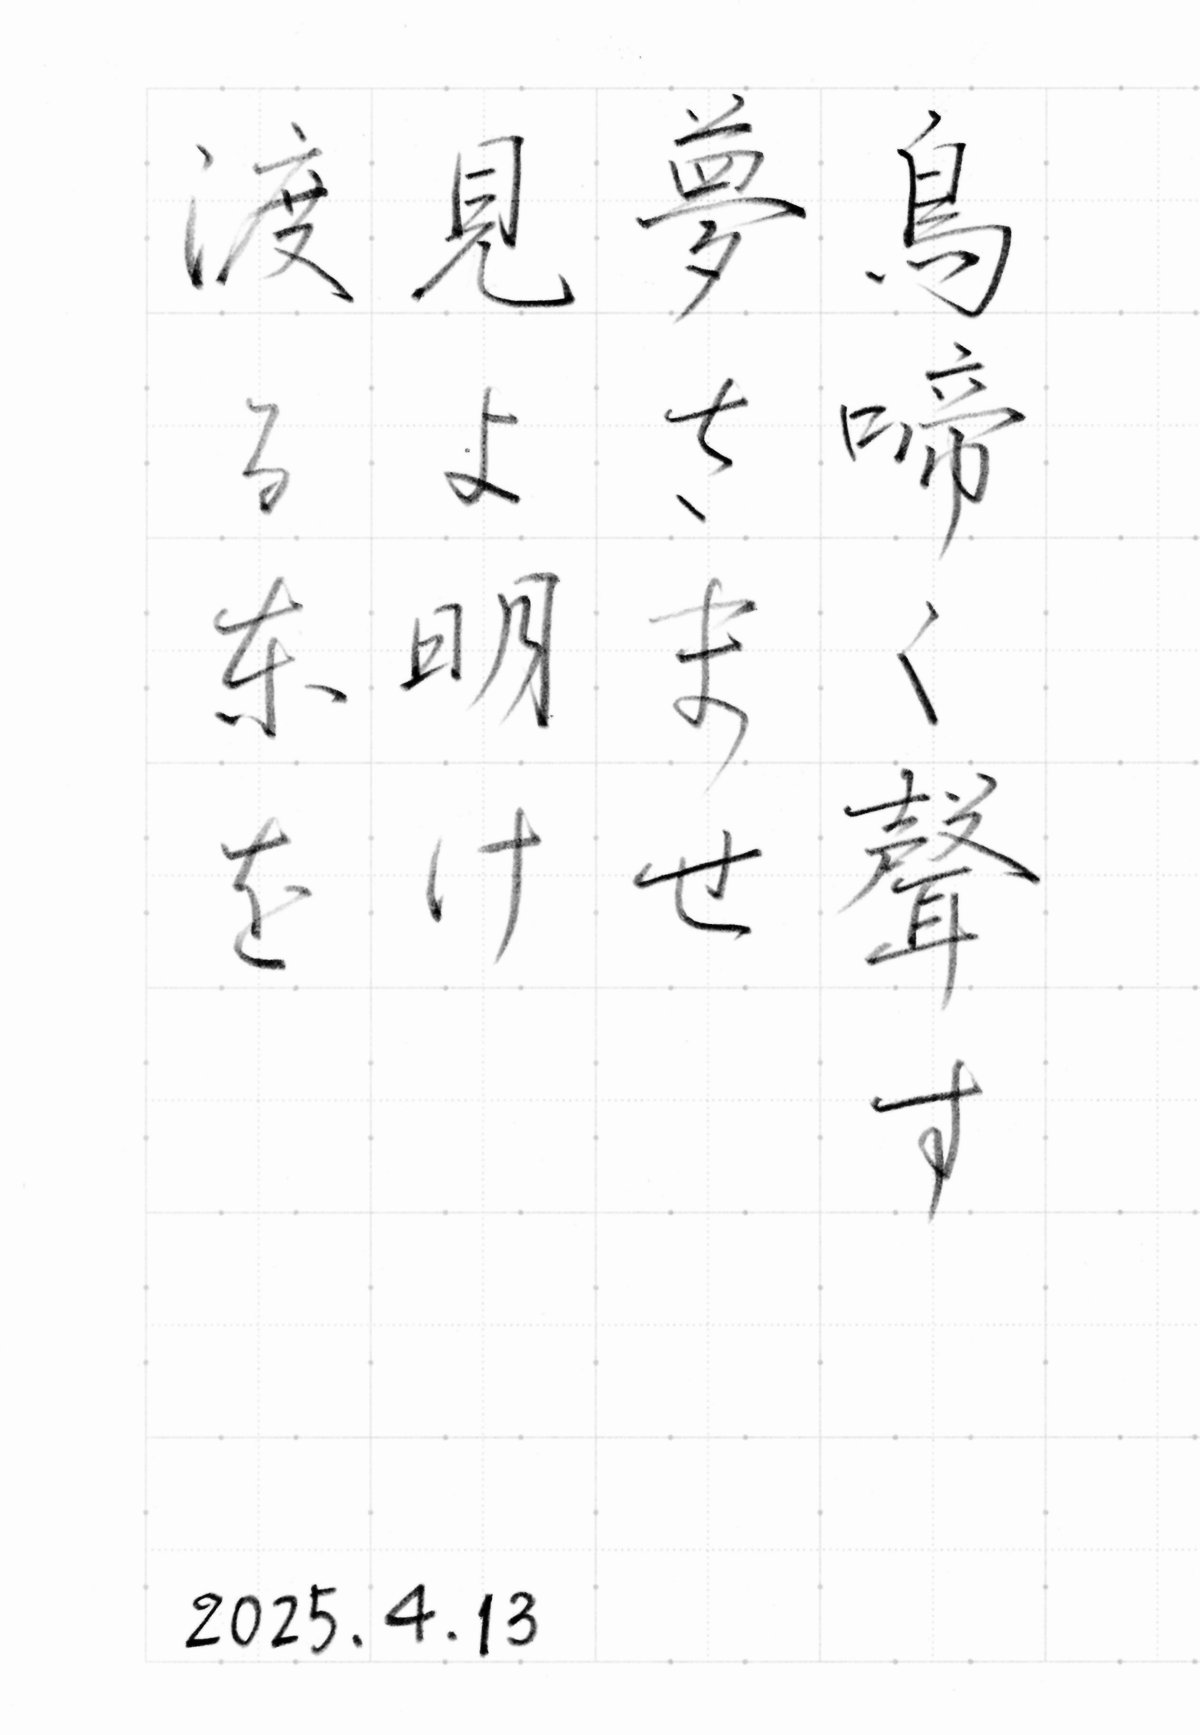 鳥啼く聲す
夢さませ
見よ明け
渡る東を
2025.4.13